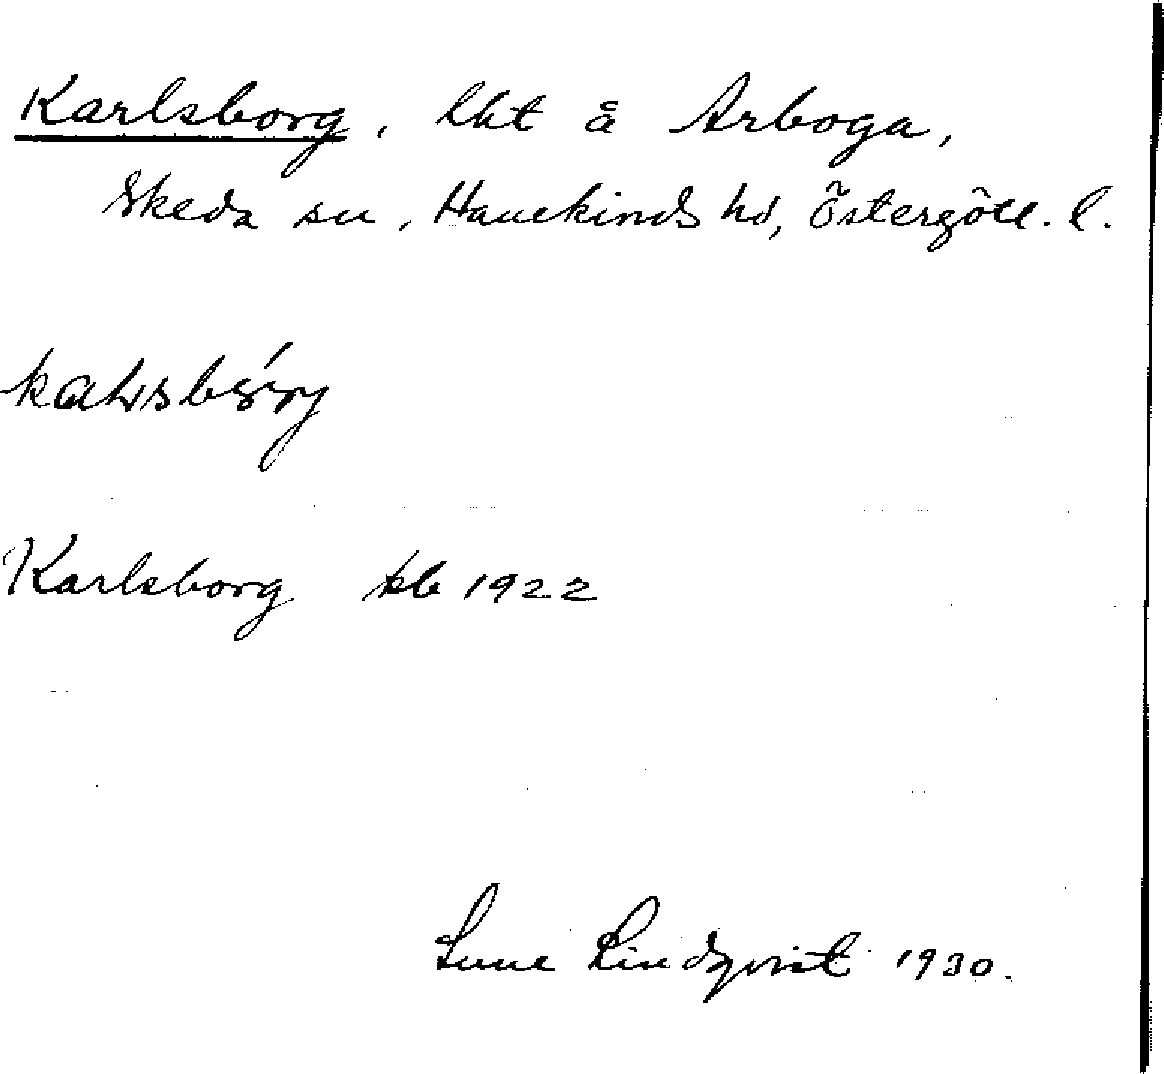 Karlsborg, lht å Arboga,
Skeda sn, Hanekinds hd, Östergötl. l.
Karlsborg kb 1922
Sune Lindqvist 1930.